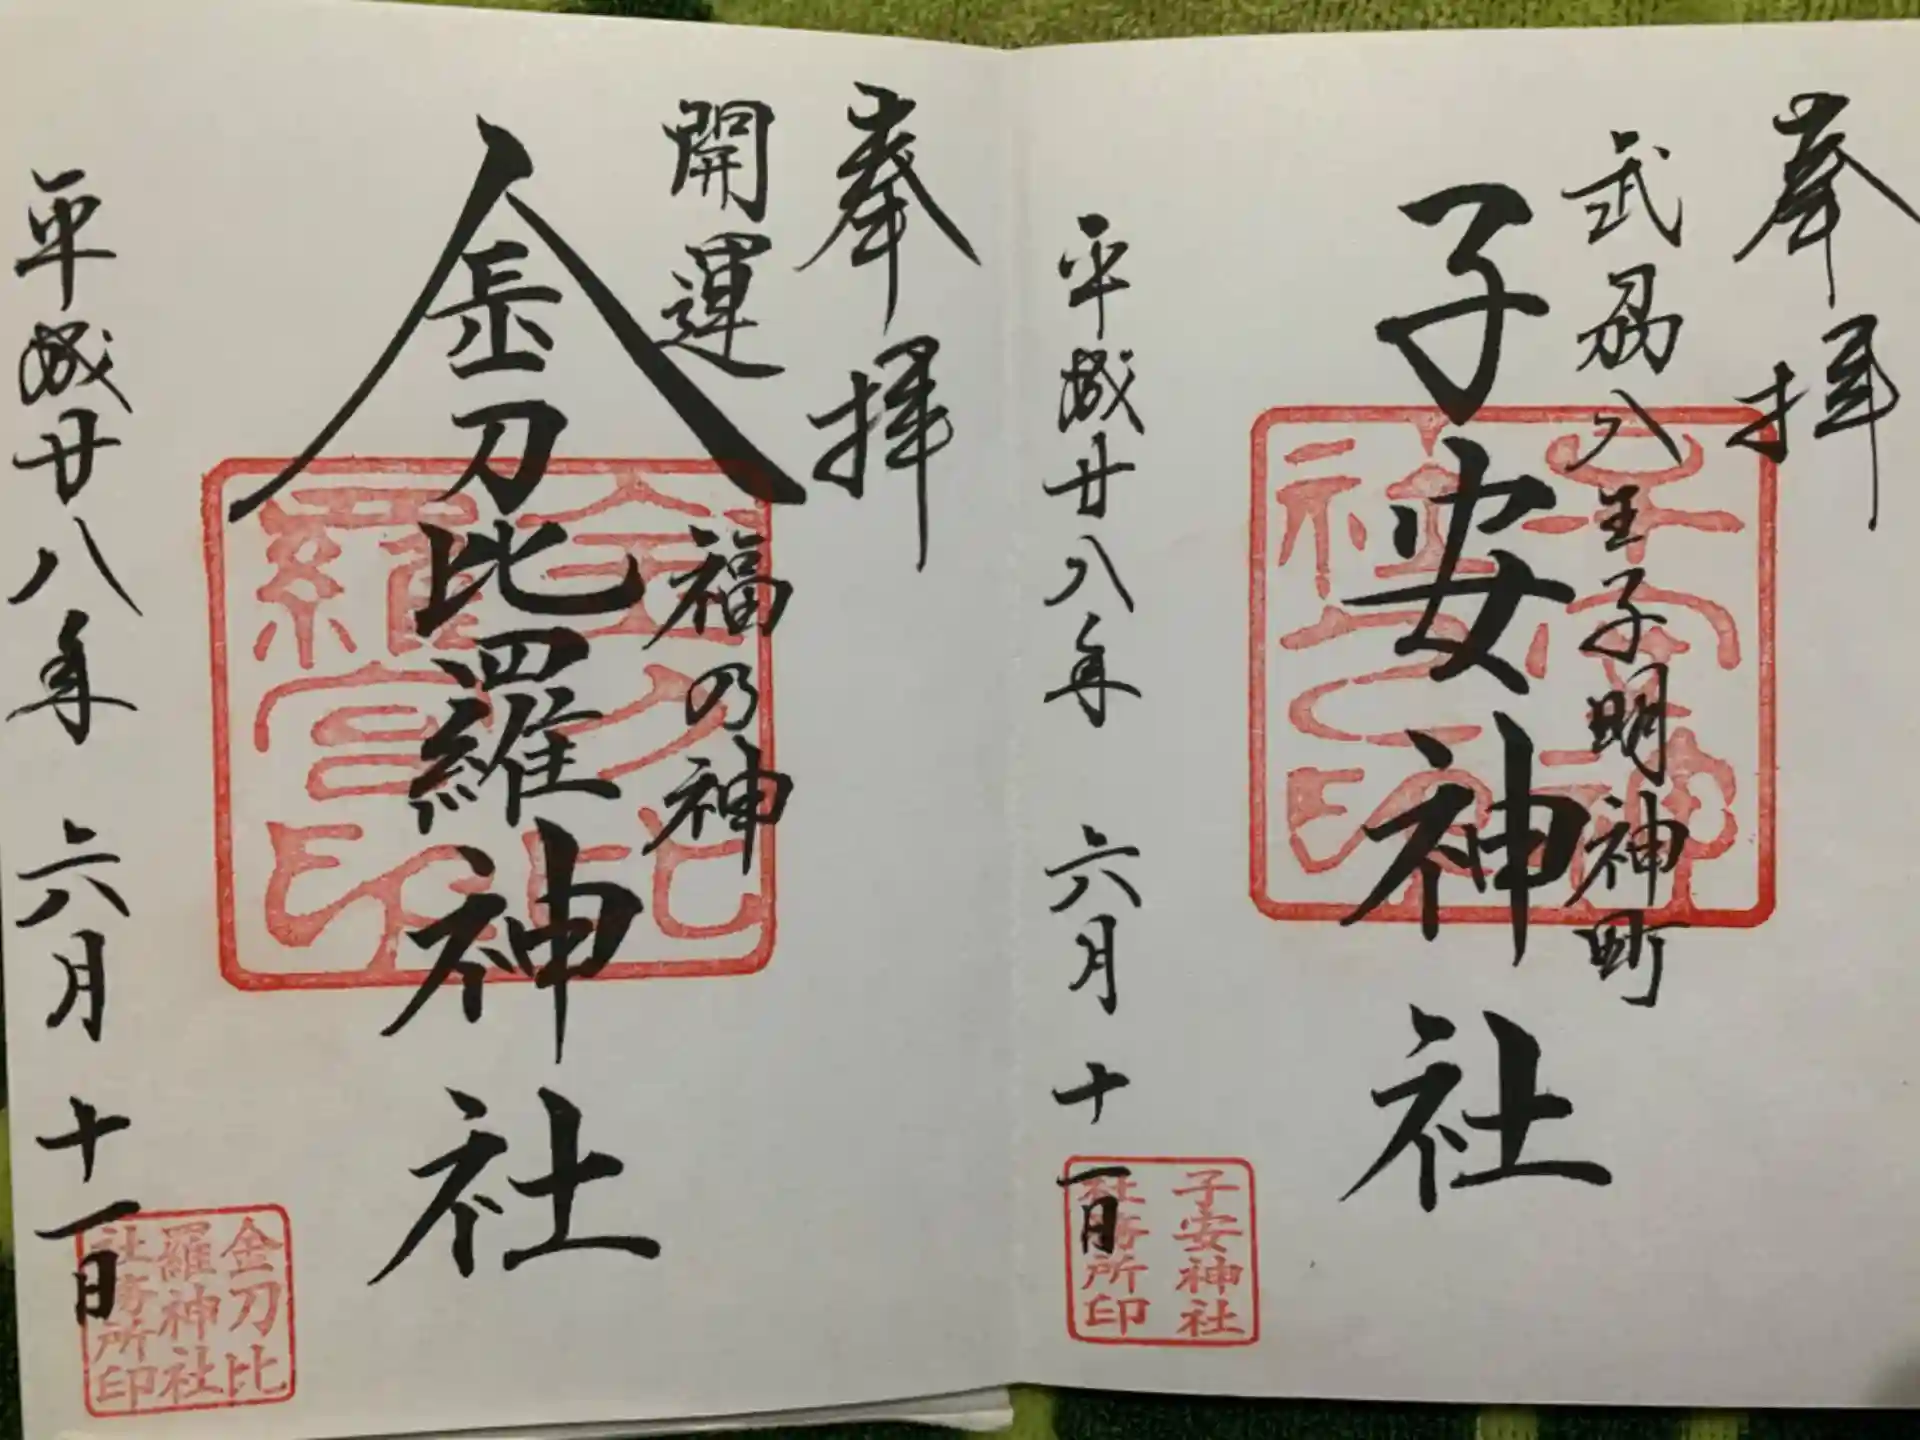 奉拝
武刕八王子明神町
子安神社
子安神社之印
平成廿八年 六月 十一日
子安神社
社務所印
奉拝
開運 福の神
金刀比羅神社
金刀比羅宮印
平成廿八年 六月 十一日
金刀比
羅神社
社務所印